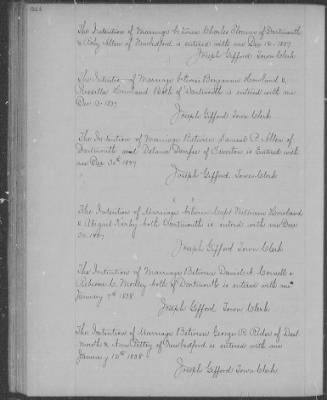 The Intention of Marriage between Charles Plomer of Dartmouth
& Ruby Allen of New Bedford is entered with me Dec 10. 1837
Joseph Gifford Town Clerk
The Intention of Marriage between Benjamin Howland &
Howland Both of Dartmouth is entered with me
Dec 1837
Joseph Gifford Town Clerk
The Intention of Marriage Between Samuel P. Allen of
Dartmouth and Delana of is Entered with
me Dec 30th 1837
Joseph Gifford Town Clerk
The Intention of Marriage between Capt William Howland
& Abigail Kirby both Dartmouth is entered with me Dec
30. 1837
Joseph Gifford Town Clerk
The Intention of Marriage Between Cornell &
Mosley both of Dartmouth is entered with me
January 7th 1838
Joseph Gifford Town Clerk
The Intention of Marriage Between George R. of Dart
mouth & Ann Pettey of New Bedford is entered with me
January 13th 1838
Joseph Gifford Town Clerk